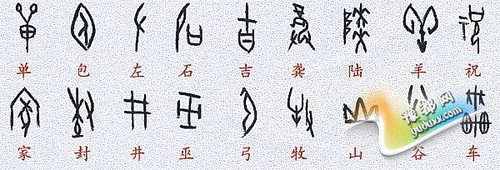 单 包 左 石 吉 龚 陆 羊 祝
家 封 井 巫 弓 牧 山 谷 车
yuxuxx.com